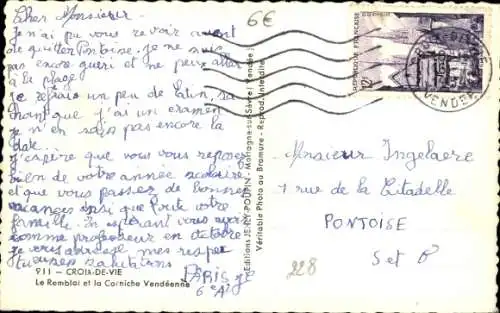 Cher Monsieur
Je n'ai pu vous revoir avant
de quitter Pontoise. Je ne suis
pas encore guéri et ne peux aller
à la plage
Je refais un peu de latin, sa
chant que j'ai un examen
je n'en sais pas encore la
date...
J'espère que vous vous reposez
bien de votre année scolaire
et que vous passez de bonnes
vacances ainsi que toute votre
famille. En espérant vous avoir
comme professeur en octobre
je vous adresse mes respec
tueuses salutations
PARIS
6e A
911 — CROIX-DE-VIE
Le Remblai et la Corniche Vendéenne
Editions JEHLY-POUPIN - Mortagne-sur-Sèvre (Vendée)
Véritable Photo au Bromure - Reprod. Interdite
6€
REPUBLIQUE FRANÇAISE
VENDEE
Monsieur Ingelaere
1 rue de la Citadelle
PONTOISE
S et O
228